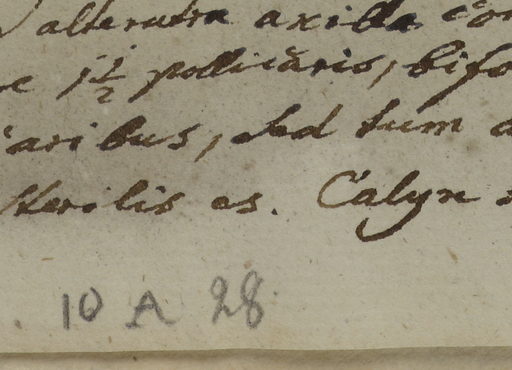 alterutra axilla con
e 1½ pollicaris, bifo
aribus, sed tum a
sterilis es. Calyx
10 A 28